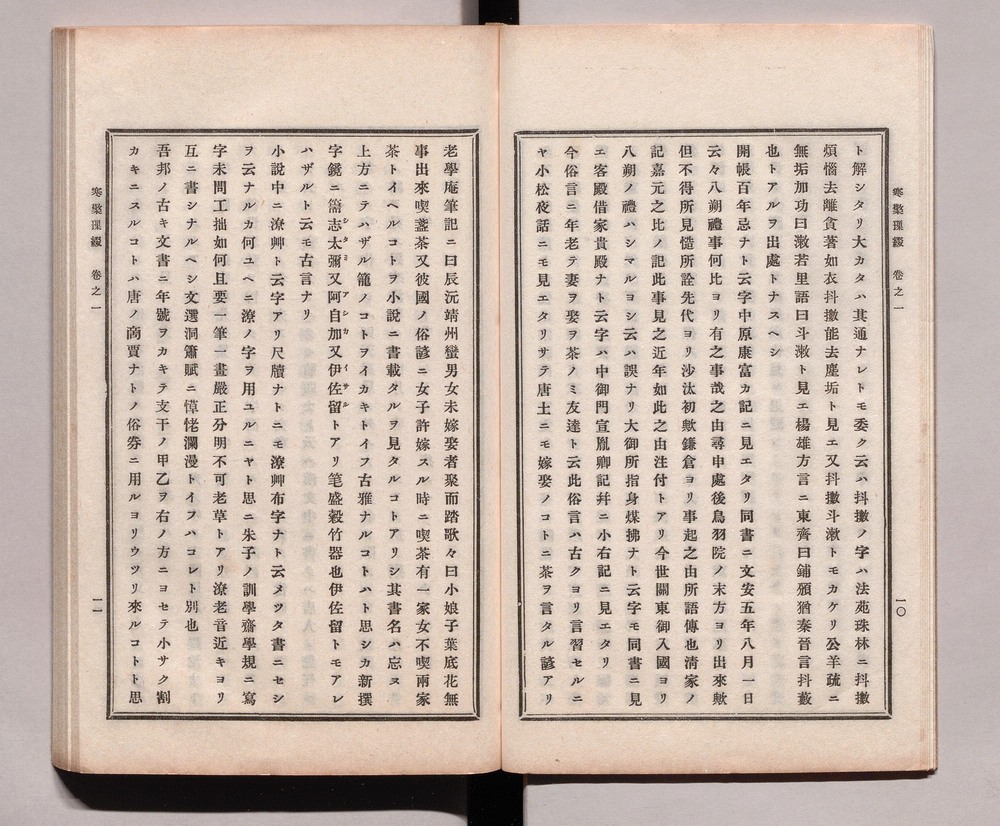 寒檠璅綴　卷之一
一〇
ト解シタリ大カタハ其通ナレトモ委ク云ハ抖擻ノ字ハ法苑珠林ニ抖擻
煩惱去離貪著如衣抖擻能去塵垢ト見エ又抖擻斗漱トモカケリ公羊疏ニ
無垢加功曰漱若里語曰斗漱ト見エ楊雄方言ニ東齊曰鋪頒猶秦晉言抖藪
也トアルヲ出處トナスヘシ
開帳百年忌ナト云字中原康富カ記ニ見エタリ同書ニ文安五年八月一日
云々八朔禮事何比ヨリ有之事哉之由尋申處後鳥羽院ノ末方ヨリ出來歟
但不得所見慥所詮先代ヨリ沙汰初歟鎌倉ヨリ事起之由所語傳也淸家ノ
記嘉元之比ノ記此事見之近年如此之由注付トアリ今世關東御入國ヨリ
八朔ノ禮ハシマルヨシ云ハ誤ナリ大御所指身煤拂ナト云字モ同書ニ見
エ客殿借家貴殿ナト云字ハ中御門宣胤卿記幷ニ小右記ニ見エタリ
今俗言ニ年老テ妻ヲ娶ヲ茶ノミ友達ト云此俗言ハ古クヨリ言習セルニ
ヤ小松夜話ニモ見エタリサテ唐土ニモ嫁娶ノコトニ茶ヲ言タル諺アリ
老學庵筆記ニ曰辰沅靖州蠻男女未嫁娶者聚而踏歌々曰小娘子葉底花無
事出來喫盞茶又彼國ノ俗諺ニ女子許嫁スル時ニ喫茶有一家女不喫兩家
茶トイヘルコトヲ小說ニ書載タルヲ見タルコトアリシ其書名ハ忘ヌ
上方ニテハザル籠ノコトヲイカキトイフ古雅ナルコトハト思シカ新撰
字鏡ニ篅志太彌又阿自加又伊佐留トアリ笔盛穀竹器也伊佐留トモアレ
ハザルト云モ古言ナリ
小說中ニ潦艸ト云字アリ尺牘ナトニモ潦艸布字ナト云メツタ書ニセシ
ヲ云ナルカ何ユヘニ潦ノ字ヲ用ユルニヤト思ニ朱子ノ訓學齋學規ニ寫
字未問工拙如何且要一筆一畫嚴正分明不可老草トアリ潦老音近キヨリ
互ニ書シナルヘシ文選洞簫賦ニ憚恅瀾漫トイフハコレト別也
吾邦ノ古キ文書ニ年號ヲカキテ支干ノ甲乙ヲ右ノ方ニヨセテ小サク割
カキニスルコトハ唐ノ商賈ナトノ俗券ニ用ルヨリウツリ來ルコトト思
寒檠璅綴　卷之一
一一